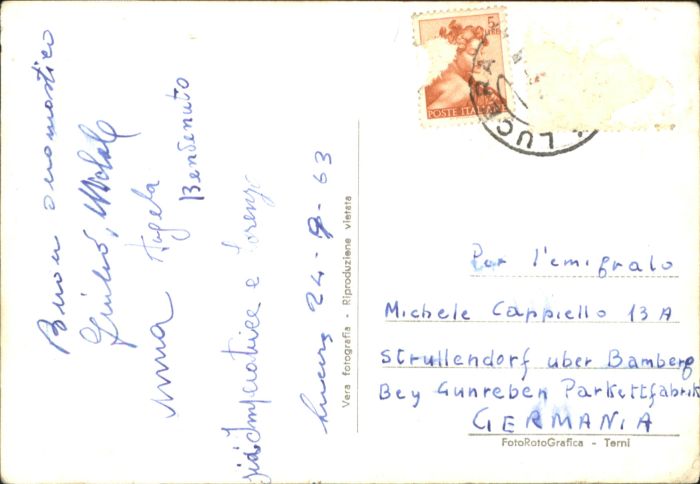 Buon onomastico
Giulio, Natale
Anna Angela
Benvenuto
zia Imperatrice e Lorenzo
Lucera 24-9-63
Vera fotografia - Riproduzione vietata
5 LIRE
POSTE ITALIANE
LUCERA
Per l'emigrato
Michele Cappiello 13 A
Strullendorf uber Bamberg
Bey Gunreben Parkettfabrik
GERMANIA
FotoRotoGrafica - Terni